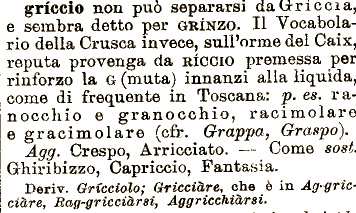 gríccio non può separarsi da Gríccia,
e sembra detto per GRÍNZO. Il Vocabola-
rio della Crusca invece, sull'orme del Caix,
reputa provenga da RÍCCIO premessa per
rinforzo la G (muta) innanzi alla liquida,
come di frequente in Toscana: p. es. ra-
nocchio e granocchio, racimolare
e gracimolare (cfr. Grappa, Graspo).
Agg. Crespo, Arricciato. — Come sost.
Ghiribizzo, Capriccio, Fantasia.
Deriv. Gricciolo; Gricciàre, che è in Ag-gric-
ciàre, Rag-gricciàrsi, Aggricchiàrsi.